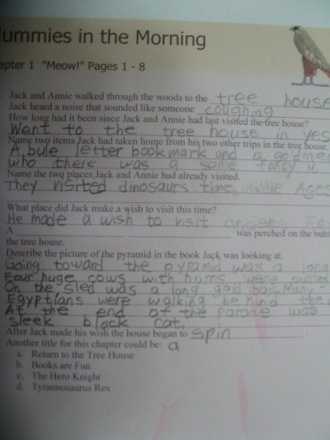 ummies in the Morning
apter 1 "Meow!" Pages 1 - 8
Jack and Annie walked through the woods to the tree house
Jack heard a noise that sounded like someone coughing
How long had it been since Jack and Annie had last visited the tree house?
Went to the tree house in yes
Name two items Jack had taken home from his two other trips in the tree house.
A bule letter bookmark and a gold me
who there was a some
Name the two places Jack and Annie had already visited.
They visited dinosaurs time, Ages
What place did Jack make a wish to visit this time?
He made a wish to visit ancient
A was perched on the
the tree house.
Describe the picture of the pyramid in the book Jack was looking at.
Going toward the pyramid was a
Four huge cows with horns were
On the sled was a long gold box. Many
Egyptians were walking be hind the
At the end of the parade was
sleek black cat.
After Jack made his wish the house began to spin
Another title for this chapter could be: a
a. Return to the Tree House
b. Books are Fun
c. The Hero Knight
d. Tyrannosaurus Rex